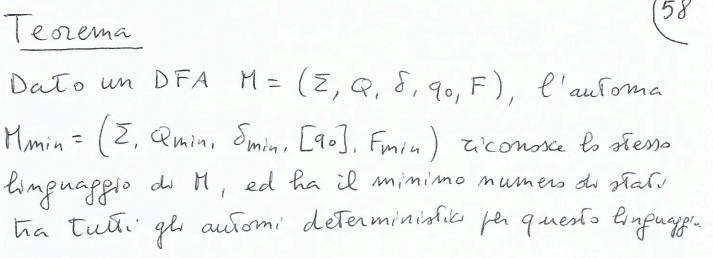 58
Teorema
Dato un DFA M = (Σ, Q, δ, q₀, F), l'automa
Mmin = (Σ, Qmin, δmin, [q₀], Fmin) riconosce lo stesso
linguaggio di M, ed ha il minimo numero di stati
tra tutti gli automi deterministici per questo linguaggio.